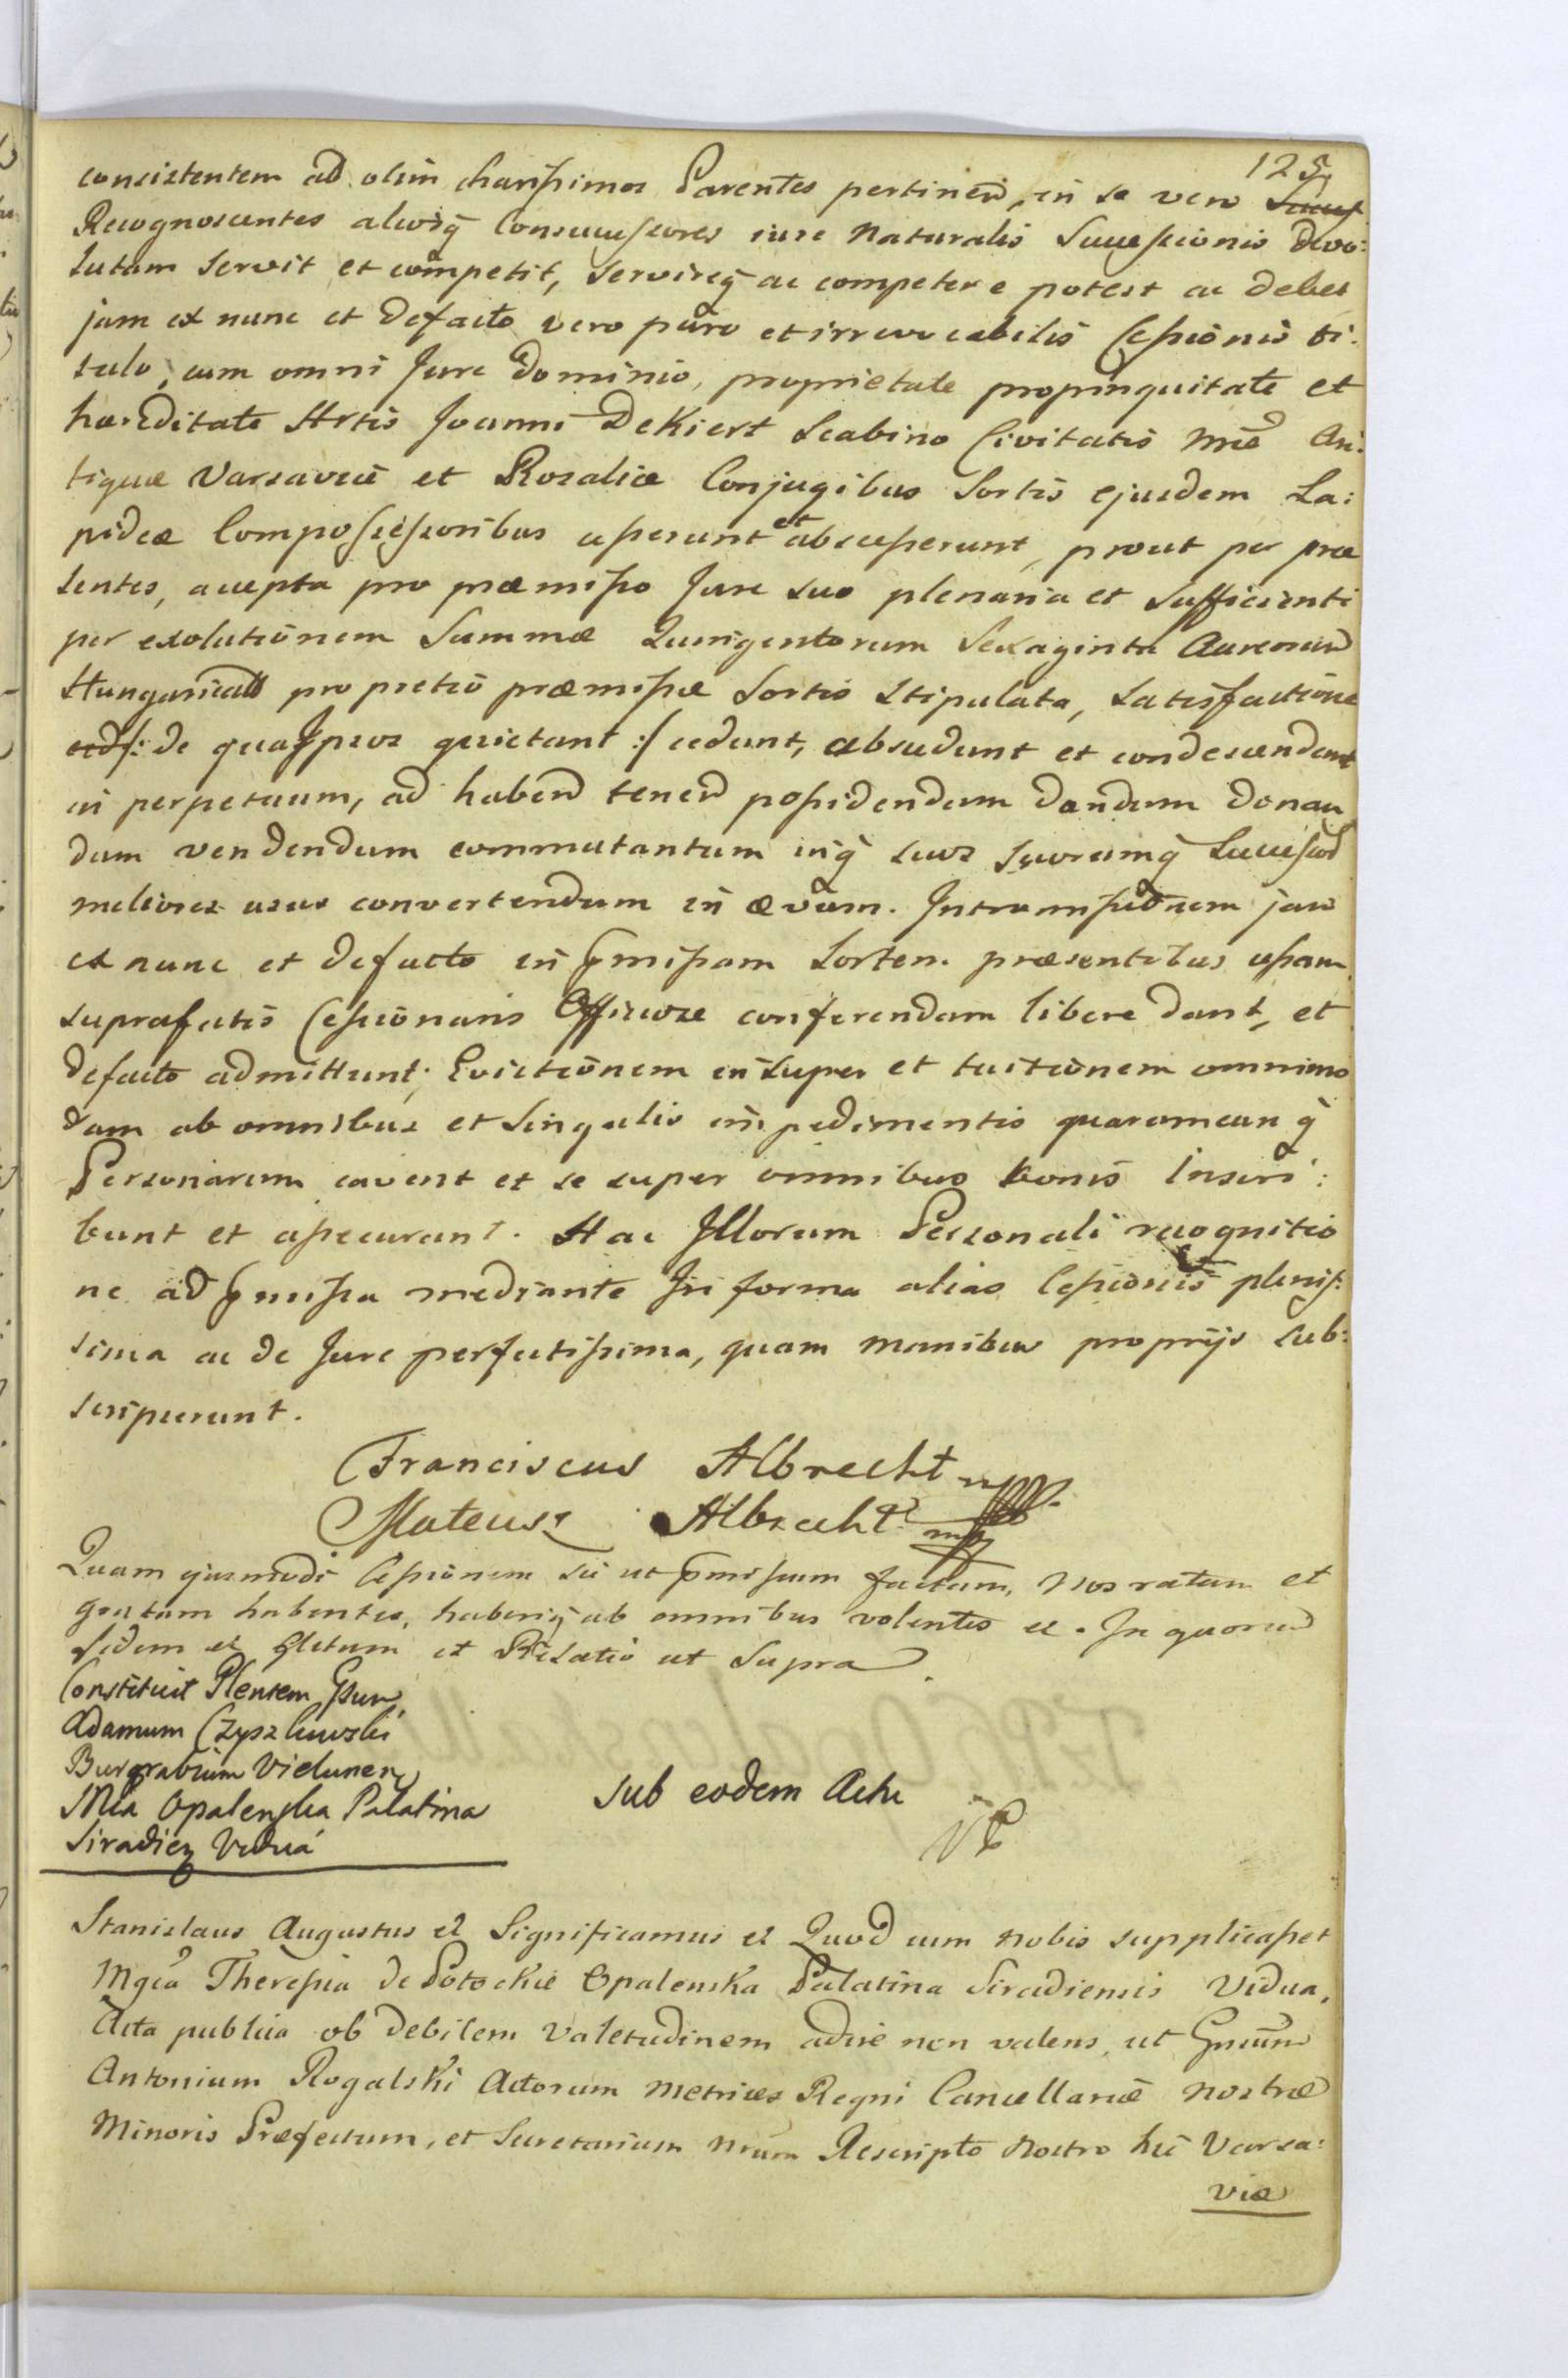 125
consistentem ad olim charissimos Parentes pertinen, in se vero
Recognoscentes aliosq Consuccessores iure Naturalis Successionis devo:
lutam servit et competit, servireq ac competere potest ac debet
jam ex nunc et defacto vero puro et irrevocabilis Cessionis ti:
tulo, cum omni Jure Dominio, proprietate propinquitate et
hæreditate Hrtis Joanni DeKiert Scabino Civitatis Nræ An:
tiquæ Varsaviæ et Rosaliæ Conjugibus Sortis ejusdem La:
pideæ Compossessoribus cesserunt et abscesserunt, prout per præ
sentes, accepta pro præmisso Jure suo plenaria et sufficienti
per exolutionem Summæ Quingentorum Sexaginta Aureorum
Hungarical pro pretio præmissæ Sortis stipulata, satisfactione
/: de qua Ipsos quietant :/ cedunt, abscedunt et condescendunt
in perpetuum, ad habend tenend possidendum dandum donan
dum vendendum commutantum inq suos suorumq Success
meliores usus convertendum in ævum. Intromissionem jam
ex nunc et defacto in pmissam Sortem præsentibus cessam
suprafatis Cessionariis Officiose conferendam libere dant, et
defacto admittunt; Evictionem insuper et tuitionem omnimo
dam ab omnibus et singulis impedimentis quarumcunq
Personarum cavent et se super omnibus bonis Inscri:
bunt et assecurant. Hac Illorum Personali recognitio
ne ad pmissa mediante In forma alias Cessionis plenis:
sima ac de Jure perfectissima, quam manibus proprijs sub:
scripserunt.
Franciscus Albrecht mp
Mateusz Albrecht mp
Quam ejusmodi Cessionem sic ut pmissum factam, Nos ratam et
gratam habentes, haberiq ab omnibus volentes et. In quorum
fidem et et Relatio ut Supra.
Constituit Plentem Gsum
Adamum Czyszkowski
Burgrabium Vielunen
Mca Opalenska Palatina
Siradien Vidua
Sub eodem Actu
Stanislaus Augustus et Significamus et Quod cum Nobis supplicasset
Mgca Theressia de Potockie Opalenska Palatina Siradiensis Vidua,
Acta publica ob debilem Valetudinem adire non valens, ut Gnsum
Antonium Rogalski Actorum Metrices Regni Cancellariæ Nostræ
Minoris Præfectum, et Secretarium Nrum Rescripto Nostro hic Varsa:
viæ